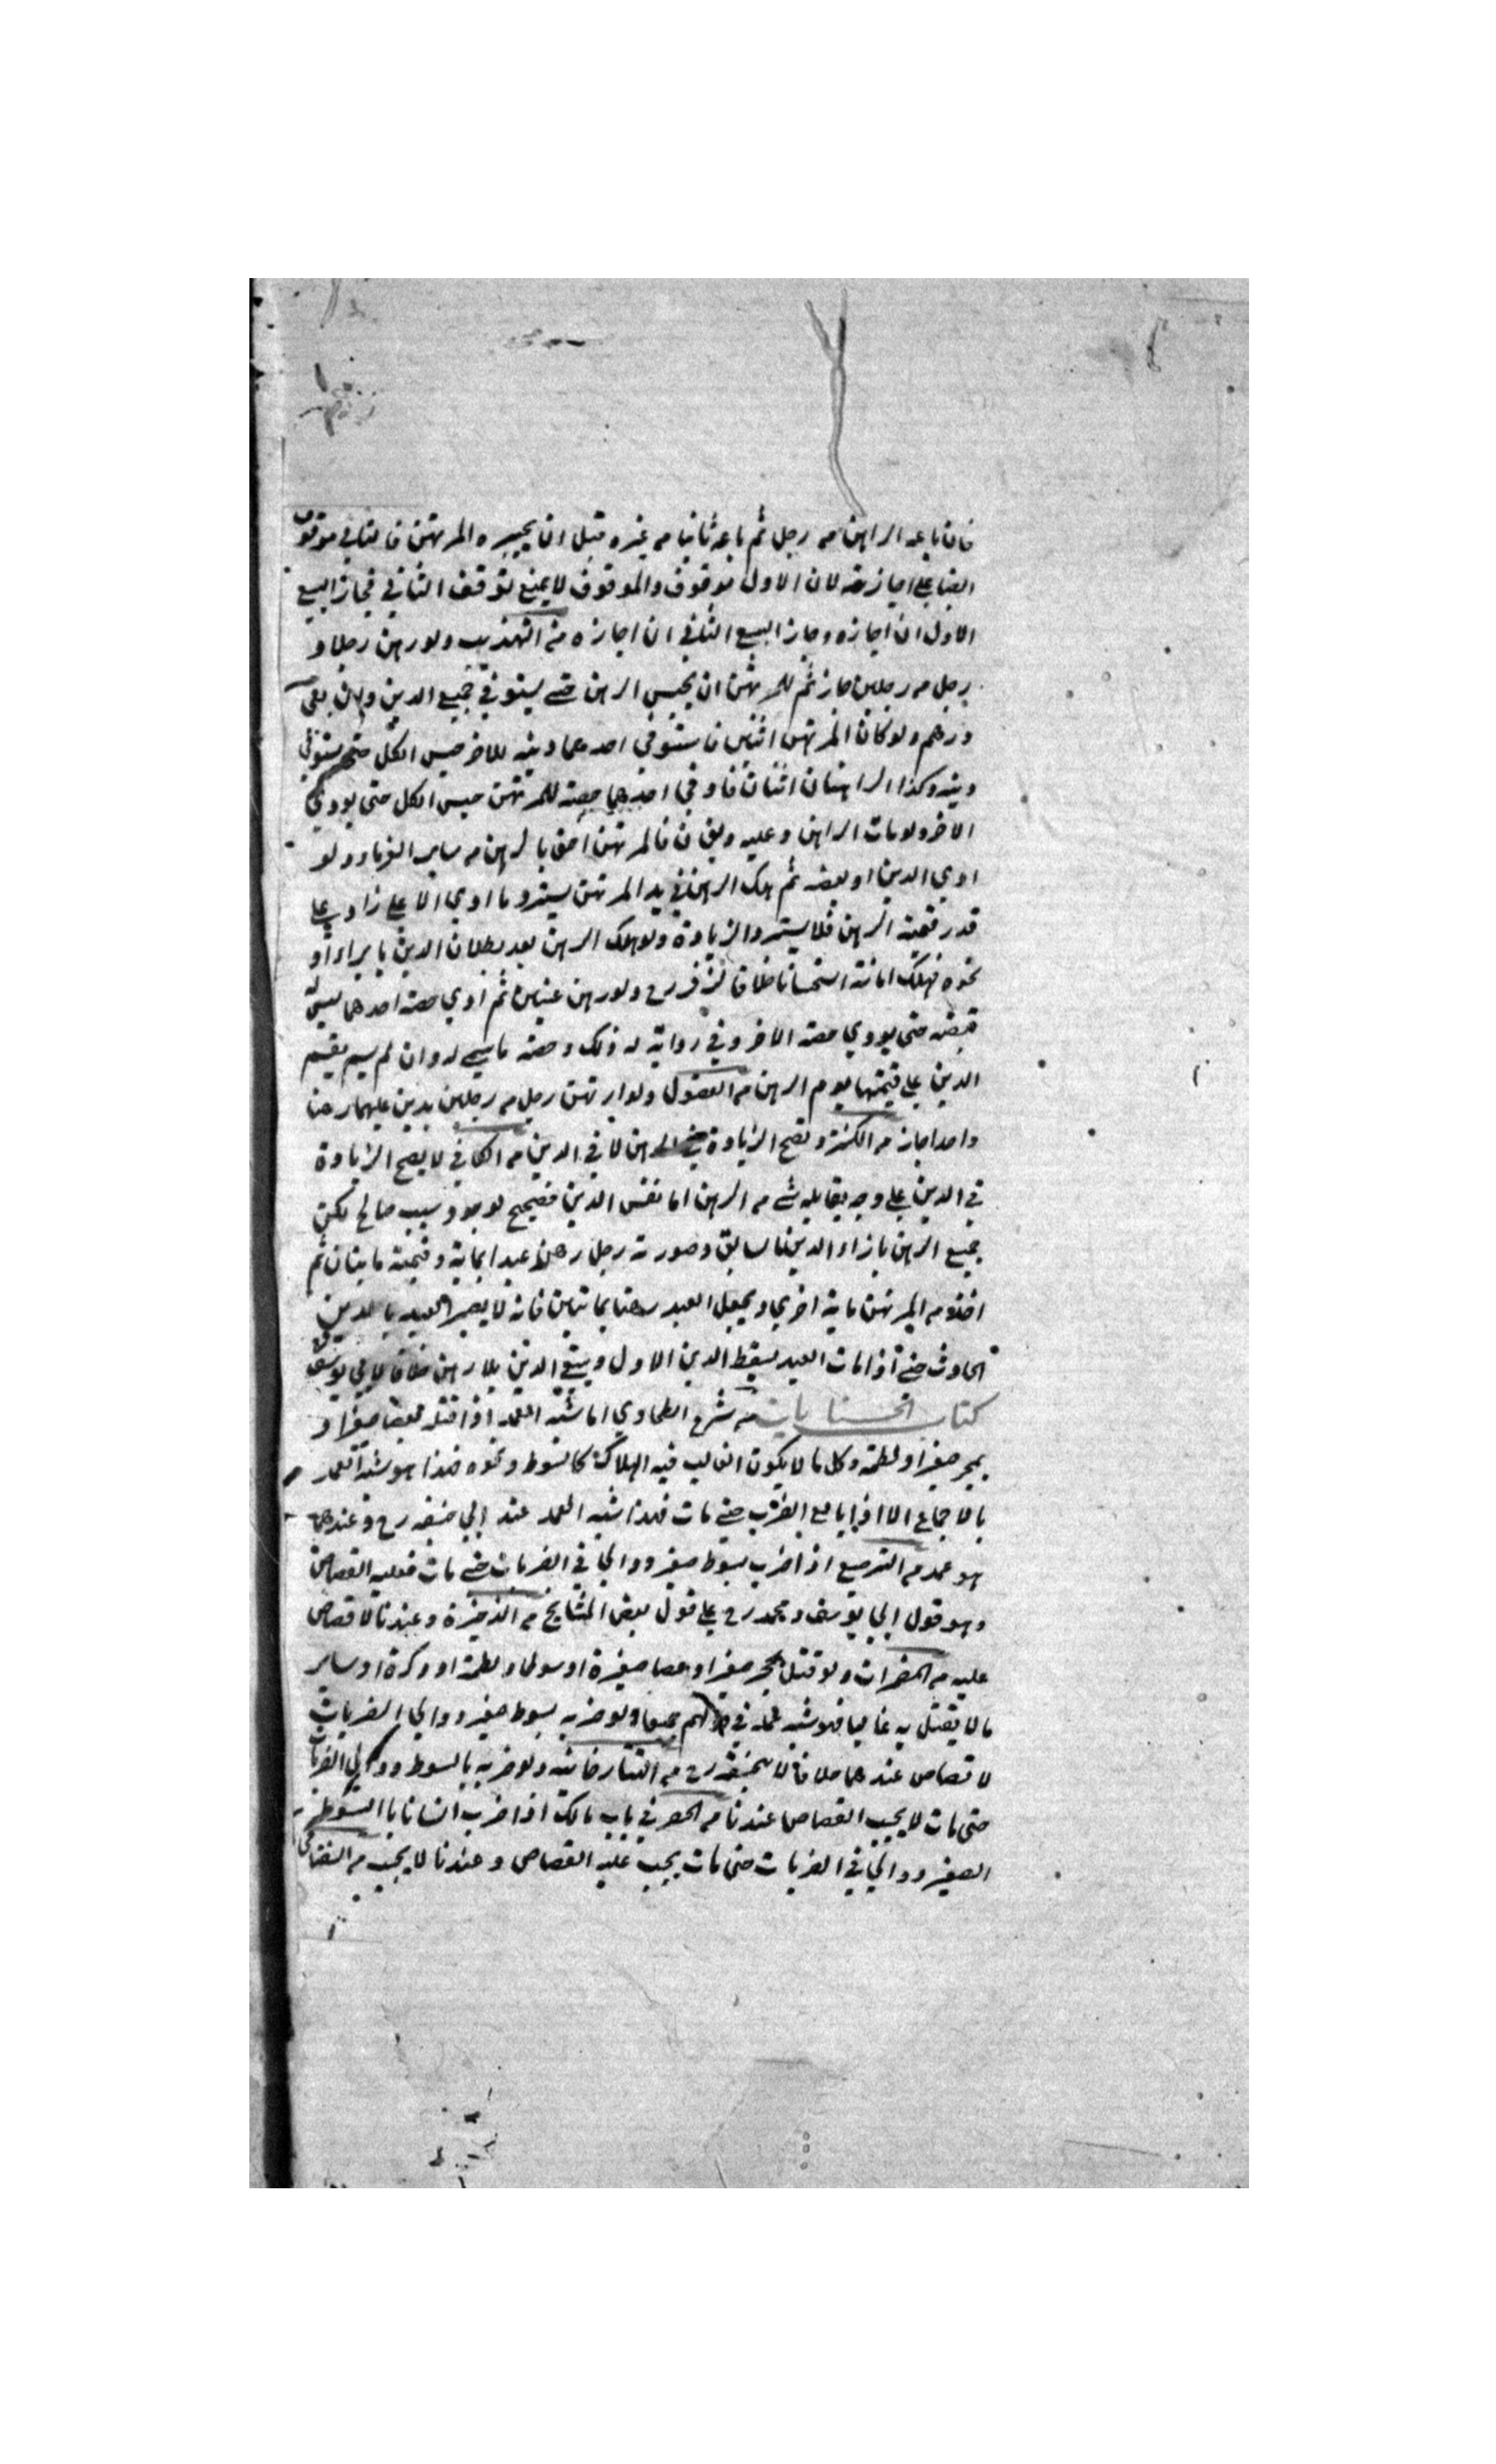 فان باعه الراهن من رجل ثم باعه ثانيا من غيره قبل ان يجيزه المرتهن فالثاني موقوف
ايضا علي اجازته لان الاول موقوف والموقوف لا يمنع توقف الثاني فجاز البيع
الاول ان اجازه وجاز البيع الثاني ان اجازه من التهذيب ولو رهن رجلا و
رجل من رجلين جاز ثم للمرتهن ان يحبس الرهن حتي يستوفي جميع الدين وان بقي
درهم ولو كان المرتهن اثنين فاستوفي احدهما دينه للاخر حبس الكل حتي يستوفي
دينه وكذا الراهنان اثنان فاوفي احدهما حصته للمرتهن حبس الكل حتي يودي
الاخر ولو مات الراهن وعليه ديون فالمرتهن احق بالرهن من ساير الغرما ولو
اودي الدين او بعضه ثم هلك الرهن في يد المرتهن يسترد ما اودي الا علي زاد علي
قدر قيمة الرهن فلا يسترد الزيادة ولو هلك الرهن بعد بطلان الدين بابراء او
نحوه فهلك امانة استحسانا خلافا لزفر رح ولو رهن عينين ثم اودي حصة احدهما ليس له
قبضه حتي يودي حصة الاخر وفي رواية له ذلك وحصة ما سمي له وان لم يسم يقسم
الدين علي قيمتها يوم الرهن من الفصول ولو ارتهن رجل من رجلين بدين عليهما رهنا
واحدا جاز من الكنز وتصح الزيادة في الرهن لا في الدين من الكافي لا يصح الزيادة
في الدين علي وجه يقابله شي من الرهن اما نفس الدين فصحيح لوجود سبب صالح لكن
جميع الرهن بازاء الدين السابق وصورته رجل رهن عبدا بماية وقيمته مايتان ثم
اخذ من المرتهن ماية اخري ويجعل العبد رهنا بمايتين فانه لا يصير العبد بالدين
الحادث حتي اذا مات العبد يسقط الدين الاول ويبقي الدين بلا رهن خلافا لابي يوسف
كتاب الجنايات من شرح الطحاوي اما شبه العمد اذا قتله بعصا صغير او
بحجر صغير او لطمة وكل ما لا يكون الغالب فيه الهلاك كالسوط ونحوه فهذا هو شبه العمد
بالاجماع الا اذا تابع الضرب حتي مات فهذا شبه العمد عند ابي حنيفه رح وعندهما
هو عمد من الترصيع اذا ضرب بسوط صغير ووالي في الضربات حتي مات فعليه القصاص
وهو قول ابي يوسف ومحمد رح علي قول بعض المشايخ من الذخيرة وعندنا لا قصاص
عليه من المضمرات ولو قتل بحجر صغير او عصا صغيرة او سوط او لطمة او وكزة او ساير
ما لا يقتل به غالبا فهو شبه عمد في قولهم جميعا ولو ضربه بسوط صغير ووالي الضربات
لا قصاص عندهما خلافا لابي حنيفة رح من التتارخانيه ولو ضربه بالسوط ووالي الضربات
حتي مات لا يجب القصاص عندنا من الحصر في باب مالك اذا ضرب انسانا بالسوط
الصغير ووالي في الضربات حتي مات يجب عليه القصاص وعندنا لا يجب من